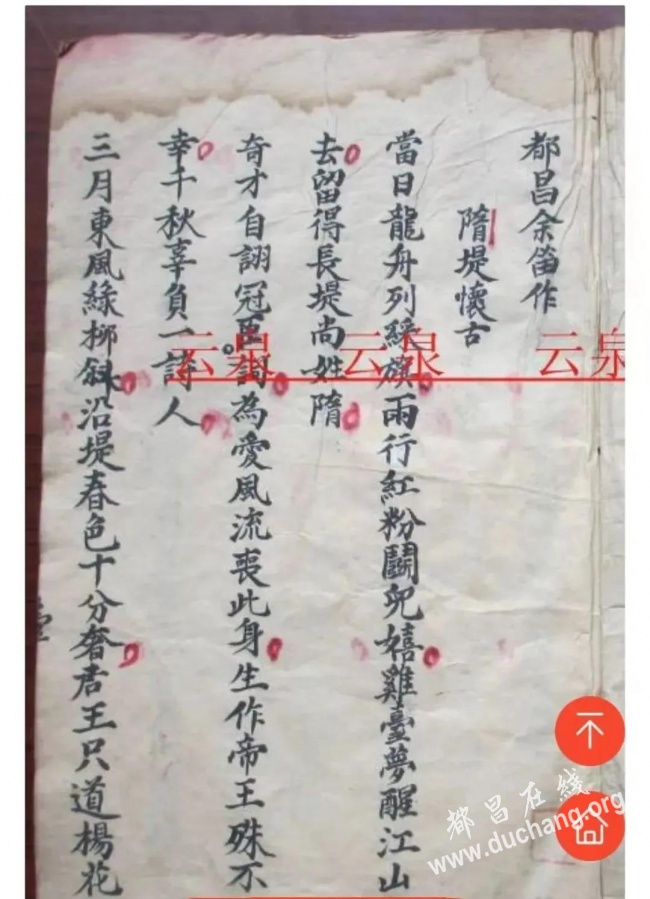 都昌余笛作
隋堤懷古
當日龍舟列綵旗兩行紅粉鬬兒嬉雞臺夢醒江山
去留得長堤尚姓隋
奇才自詡冠臣詞為愛風流喪此身生作帝王殊不
幸千秋辜負一詩人
三月東風綠柳斜沿堤春色十分奢君王只道楊花
云泉 云泉 云泉
都昌在线
www.duchang.org